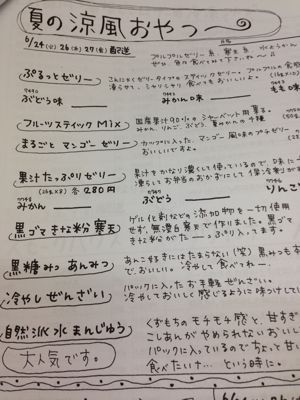 夏の涼風おやつ〜
6/24(火)26(木)27(金)配送
プルプルゼリー系、寒天系、水ようかん
ぷるっとゼリー
こんにゃくゼリータイプのスティックゼリー。プルプルの食感
凍らせて、シャリシャリ
ぶどう味
みかん味
もも味
フルーツスティックMix
国産果汁90%のシャーベント用菓子。
みかん、りんご、ぶどう、夏みかんの4種
まるごとマンゴーゼリー
カップに入った、マンゴー風味のプチゼリー
おいしいですよ。
果汁たっぷりゼリー
(23g×8)各280円
果汁をかなり濃くして使っているので、
凍らしてお弁当のおかずにして保冷剤が
みかん
ぶどう
りんご
黒ゴマきな粉寒天
ゲル化剤などの添加物を一切使用
せず、無漂白寒天で作りました。黒ゴマ
きな粉がたーーっぷり入ってます。
黒糖みつあんみつ
あんこ好きにはたまらない(笑)黒みつも本
でおいしい。冷やして食べてねー。
冷やしぜんざい
パックに入ったお手軽ぜんざい。
冷やしておいしく感じるように味つけしてい
自然派水まんじゅう
くずもちのモチモチ感と、甘すぎ
こしあんがやめられないおいし
大人気です。
パックに入っているのでちょっと甘い
食べたいナ…という時に。